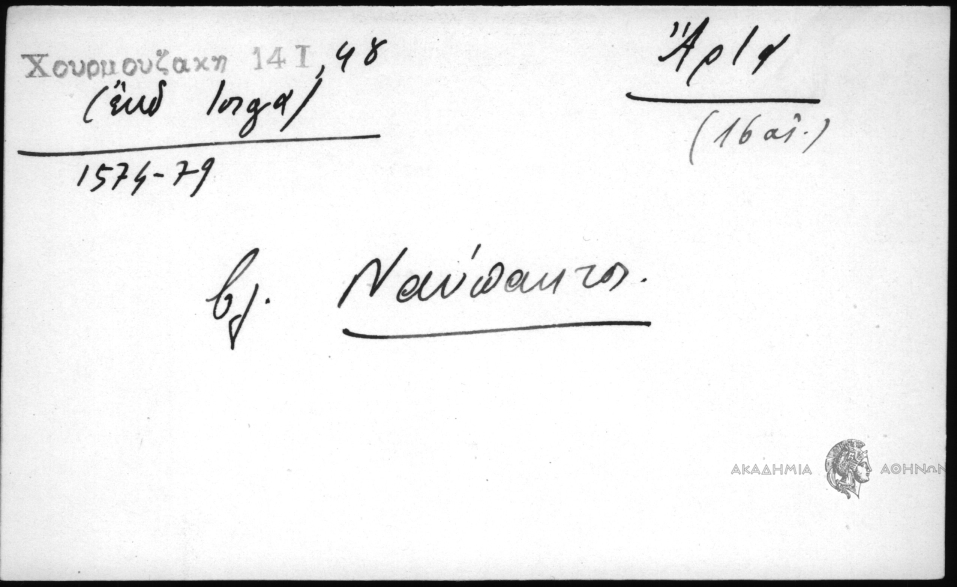 Χουρμουζακη 14 Ι, 48
Ἄρτα
(ἔκδ Ιorga)
(16 αἰ.)
1574-79
βλ. Ναύπακτος.
ΑΚΑΔΗΜΙΑ ΑΘΗΝΩΝ